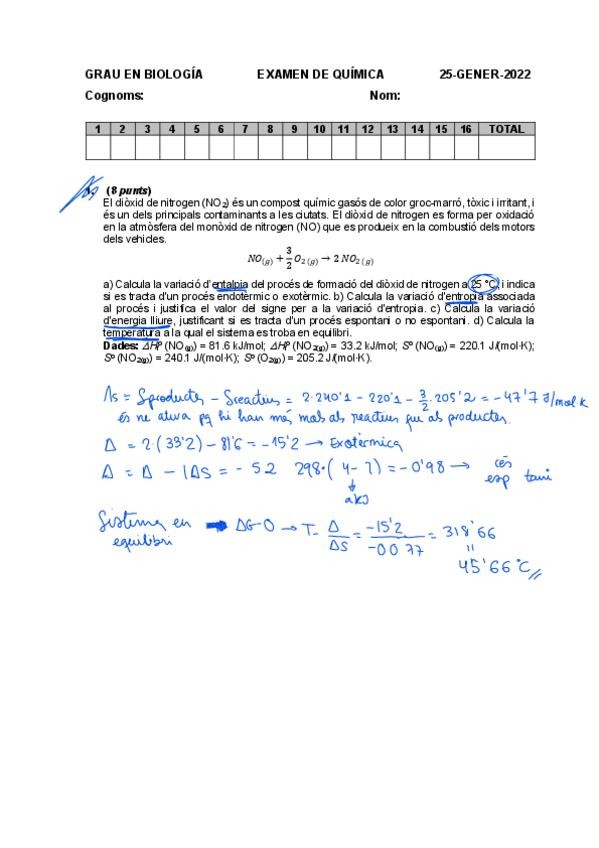 GRAU EN BIOLOGÍA EXAMEN DE QUÍMICA 25-GENER-2022
Cognoms: Nom:
1 2 3 4 5 6 7 8 9 10 11 12 13 14 15 16 TOTAL
(8 punts)
El diòxid de nitrogen (NO₂) és un compost químic gasós de color groc-marró, tòxic i irritant, i
és un dels principals contaminants a les ciutats. El diòxid de nitrogen es forma per oxidació
en la atmòsfera del monòxid de nitrogen (NO) que es produeix en la combustió dels motors
dels vehicles.
NO(g) + 3/2 O₂ (g) → 2 NO₂ (g)
a) Calcula la variació d'entalpia del procés de formació del diòxid de nitrogen a 25 °C, i indica
si es tracta d'un procés endotèrmic o exotèrmic. b) Calcula la variació d'entropia associada
al procés i justifica el valor del signe per a la variació d'entropia. c) Calcula la variació
d'energia lliure, justificant si es tracta d'un procés espontani o no espontani. d) Calcula la
temperatura a la qual el sistema es troba en equilibri.
Dades: ΔHº (NO(g)) = 81.6 kJ/mol; ΔHº (NO₂(g)) = 33.2 kJ/mol; Sº (NO(g)) = 220.1 J/(mol·K);
Sº (NO₂(g)) = 240.1 J/(mol·K); Sº (O₂(g)) = 205.2 J/(mol·K).
Δs = Sproductes - Sreactius = 2·240'1 - 220'1 - 3/2·205'2 = -47'7 J/mol·K
és ne ativa pq hi han més mols als reactius que als productes.
Δ = 2·(33'2) - 81'6 = -15'2 → Exotèrmica
Δ = Δ - ΔS = - 52 298·( 4-7) = -0'98 → cés
esp tani
Sistema en → ΔG-0 → T- Δ/ΔS = -15'2/-0077 = 318'66
equilibri
45'66°C